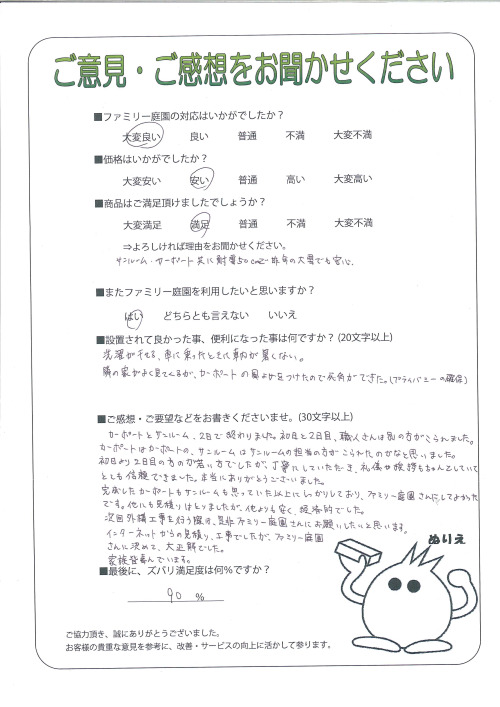 ご意見・ご感想をお聞かせください
■ファミリー庭園の対応はいかがでしたか？
大変良い 良い 普通 不満 大変不満
■価格はいかがでしたか？
大変安い 安い 普通 高い 大変高い
■商品はご満足頂けましたでしょうか？
大変満足 満足 普通 不満 大変不満
⇒よろしければ理由をお聞かせください。
サンルーム・カーポート共に耐雪50cmで昨年の大雪でも安心。
■またファミリー庭園を利用したいと思いますか？
はい どちらとも言えない いいえ
■設置されて良かった事、便利になった事は何ですか？(20文字以上)
洗濯が干せる、車に乗ったときに車内が暑くない。
隣の家がよく見えてくるが、カーポートの をつけたので死角ができた。(プライバシーの確保)
■ご感想・ご要望などをお書きくださいませ。(30文字以上)
カーポートとサンルーム、2日で終わりました。初日と2日目、職人さんは別の方がこられました。
カーポートはカーポートの、サンルームはサンルームの担当の方がこられたのかなと思いました。
初日より2日目の方の方が若い方でしたが、丁寧にしていただき、礼儀や挨拶もちゃんとしていて
とても信頼できました。本当にありがとうございました。
完成したカーポートもサンルームも思っていた以上にしっかりしており、ファミリー庭園さんにしてよかった
です。他にも見積りはとりましたが、他よりも安く、経済的でした。
次回外構工事を行う際は、是非ファミリー庭園さんにお願いしたいと思います。
インターネットからの見積り、工事でしたが、ファミリー庭園
さんに決めて、大正解でした。
家族皆喜んでいます。
■最後に、ズバリ満足度は何％ですか？
90 %
ぬりえ
ご協力頂き、誠にありがとうございました。
お客様の貴重な意見を参考に、改善・サービスの向上に活かして参ります。